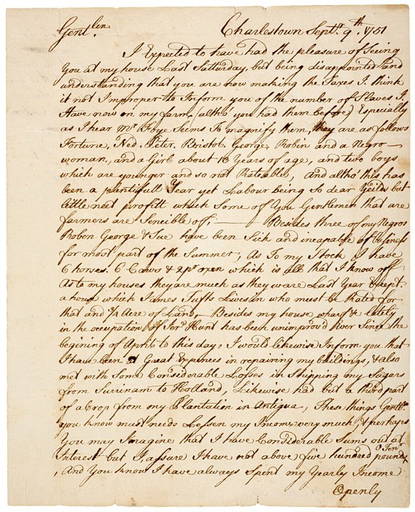 Gentlen. Charlestown Septr. 9th. 1751
I Expected to have had the pleasure of Seeing
You at my house Last Saturday, but being disappointed and
understanding that you are now making the Taxes I think
it not Improper to Inform you of the number of Slaves I
Have now on my farm, altho you had them before, Especially
as I hear Mr. Foye Seems To magnify them, they are as follows
Fortune, Ned, Peter, Bristol, George, Robin and a Negro
woman, and a Girl about 16 Years of age, and two boys
which are younger and so not Rateable, And altho' this has
been a plentifull Year yet Labour being So dear Yeilds but
little nett profitt which Some of You Gentlemen that are
farmers are Sencible off. Besides three of my Negros
Robin George & Sue have been Sick and incapable of business
for Most part of the Summer, As To my Stock I have
6 horses, 6 Cows & 2 pr. oxen which is all that I know off
As to my houses they are much as they ware Last Year Except
a house which James Tufts Lives in who must be Rated for
that and ye. Acre of Land, Besides my house wharf & lately
in the occupation of Hunt has been unimprov'd Ever Since the
begining of April to this day, I would Likewise Inform you that
I have been at Great Expences in repairing my buildings, & also
met with Some Considerable Losses in Shipping my Sugars
from Surinam to Holland, Likewise had but a third part
of a Crop from my Plantation in Antigua, These things Gentln.
you know must needs Lessen my Income very much, & perhaps
You may Imagine that I have Considerable Sums out at
Interest but I assure I have not above five hundred pounds O. Tenr.
And You know I have always Spent my Yearly Income
Openly